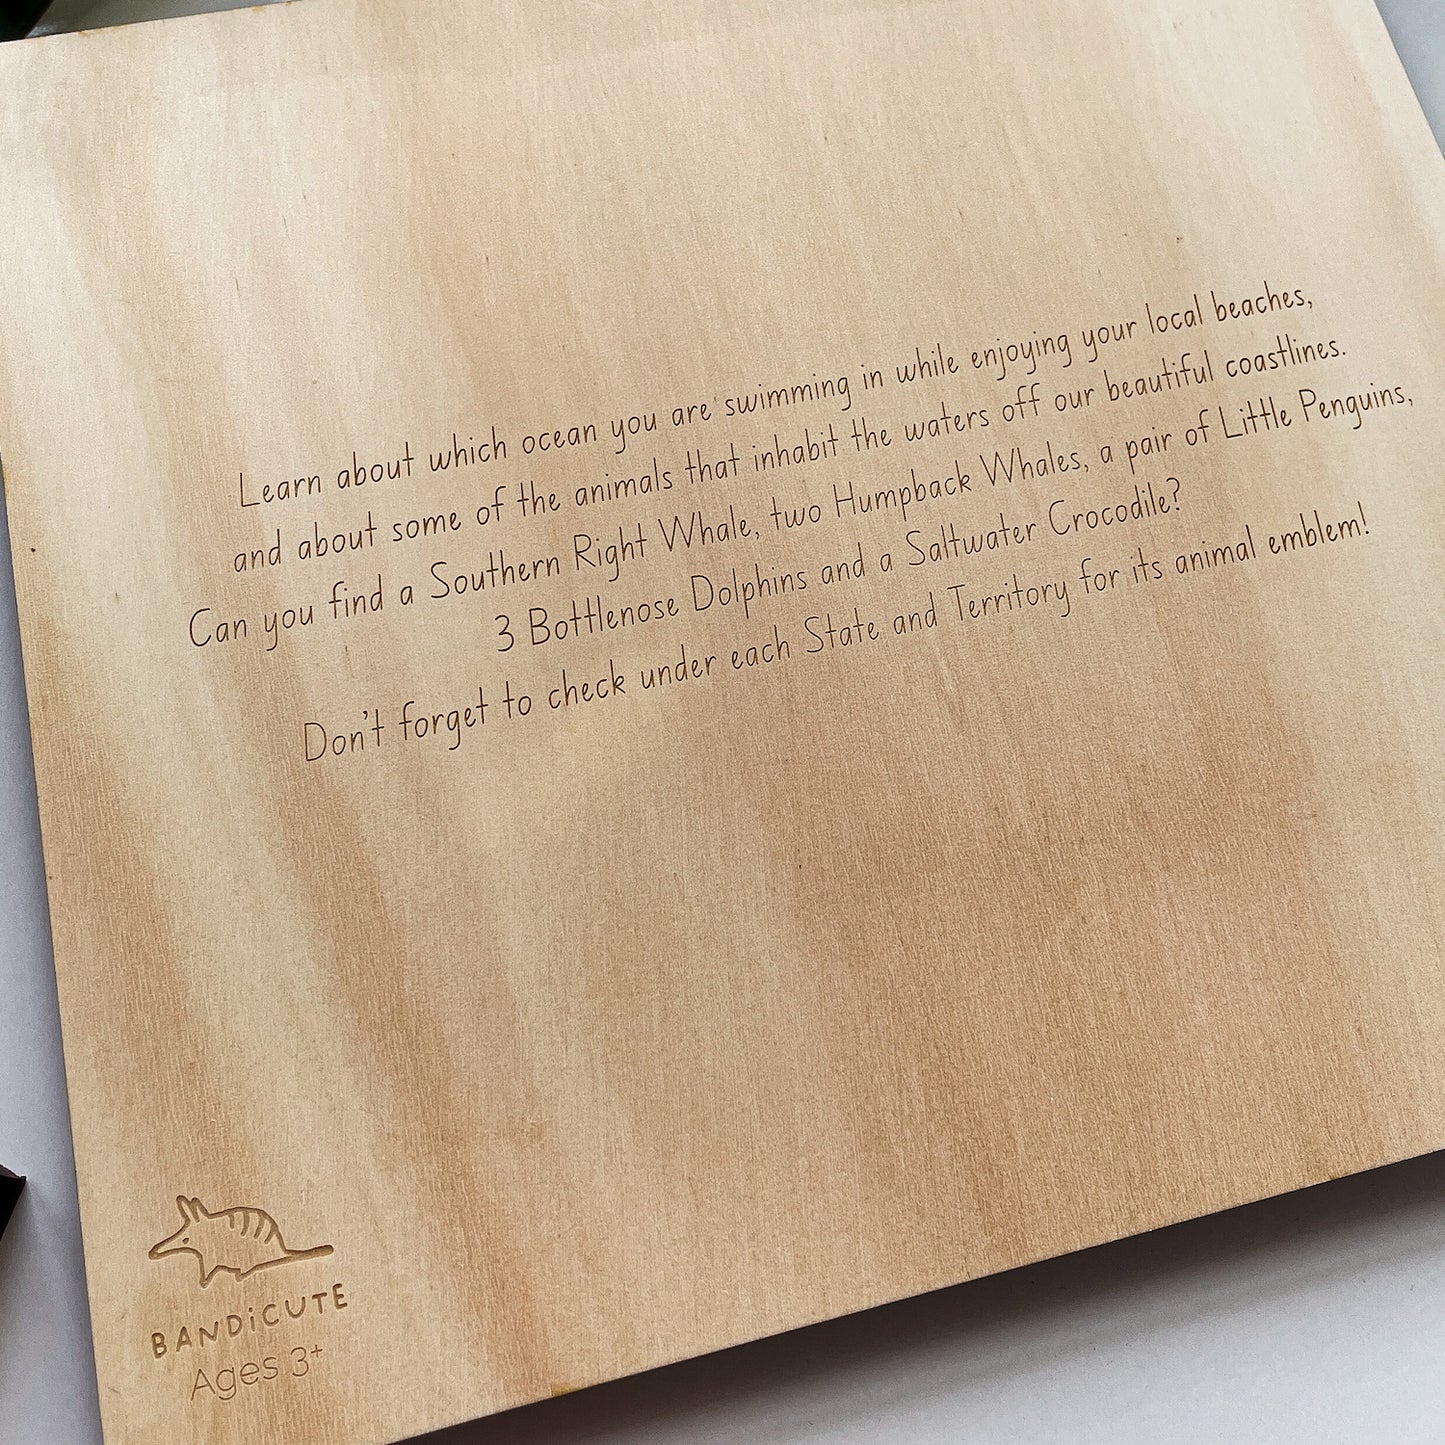 Learn about which ocean you are swimming in while enjoying your local beaches,
and about some of the animals that inhabit the waters off our beautiful coastlines.
Can you find a Southern Right Whale, two Humpback Whales, a pair of Little Penguins,
3 Bottlenose Dolphins and a Saltwater Crocodile?
Don't forget to check under each State and Territory for its animal emblem!
BANDiCUTE
Ages 3+